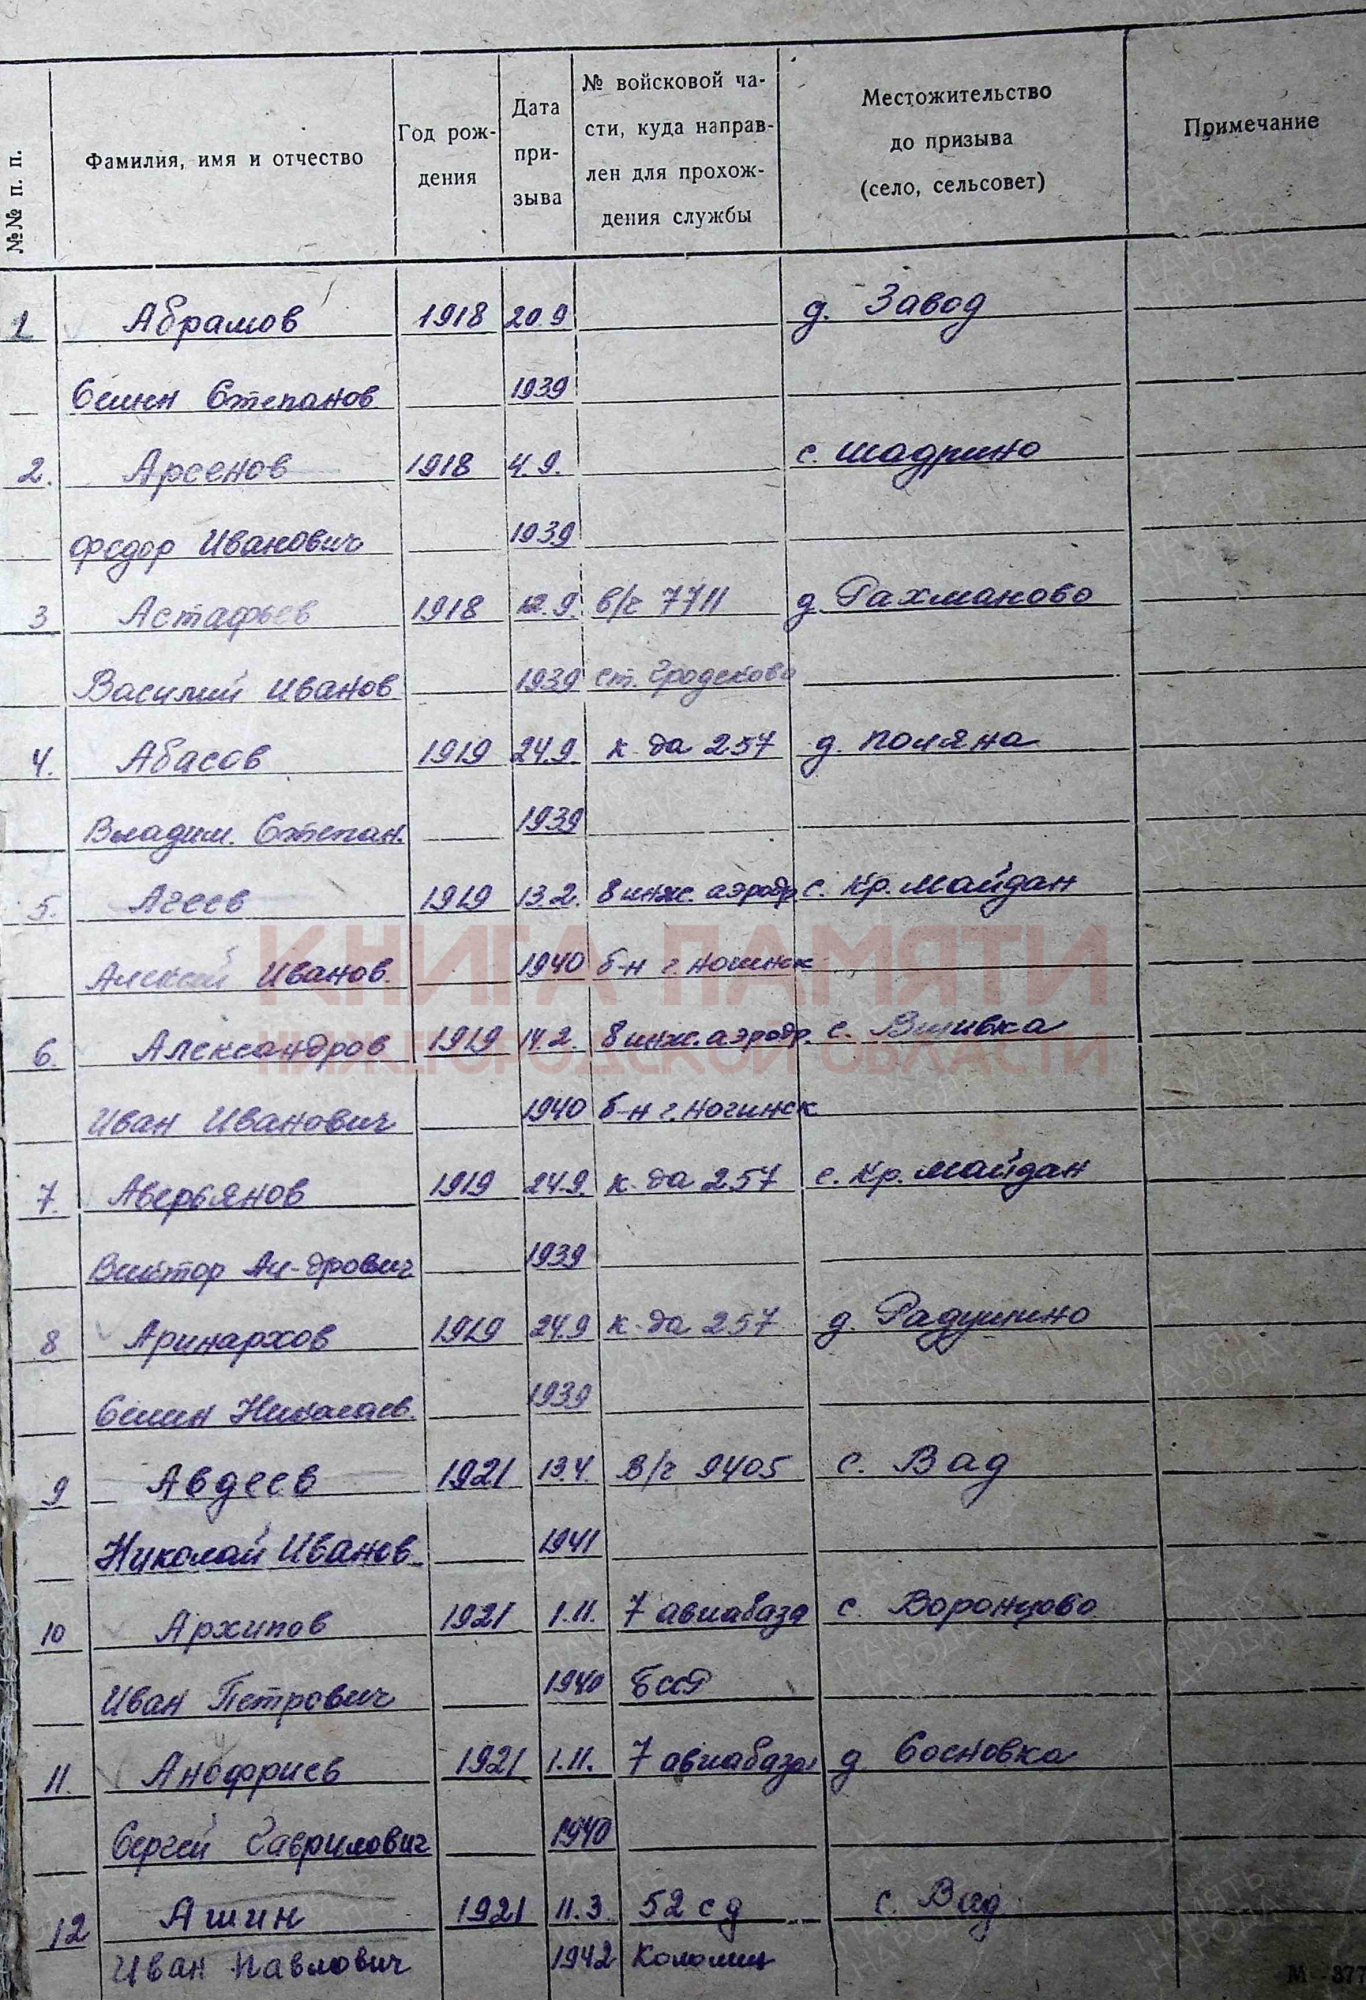 №№ п. п. Фамилия, имя и отчество Год рож- дения Дата при- зыва № войсковой ча- сти, куда направ- лен для прохож- дения службы Местожительство до призыва (село, сельсовет) Примечание
1 Абрамов 1918 20.9 д. Завод
Семен Степанов 1939
2. Арсенов 1918 4.9. с. Шадрино
Федор Иванович 1939
3 Астафьев 1918 12.9. в/ч 7711 д. Рахманово
Василий Иванов 1939 ст. Гродеково
4. Абасов 1919 24.9. к-да 257 д. Поляна
Владим. Степан. 1939
5. Агеев 1919 13.2. 8 инж. аэродр с. Кр. Майдан
Алексей Иванов. 1940 б-н г. Ногинск
КНИГА ПАМЯТИ
6. Александров 1919 14.2. 8 инж. аэродр. с. Вшивка
НИЖЕГОРОДСКОЙ ОБЛАСТИ
Иван Иванович 1940 б-н г. Ногинск
7. Аверьянов 1919 24.9. к-да 257 с. Кр. Майдан
Виктор Ан-дрович 1939
8 Аринархов 1919 24.9 к-да 257 д Радушино
Семен Николаев. 1939
9 Авдеев 1921 13.4. В/ч 9405 с. Вад
Николай Иванов 1941
10 Архипов 1921 1.11. 7 авиабаза с. Воронцово
Иван Петрович 1940 БССР
11. Анофриев 1921 1.11. 7 авиабаза д Сосновка
Сергей Гаврилович 1940
12 Ашин 1921 11.3 52 сд с. Вад
Иван Павлович 1942 Коломны
М—377